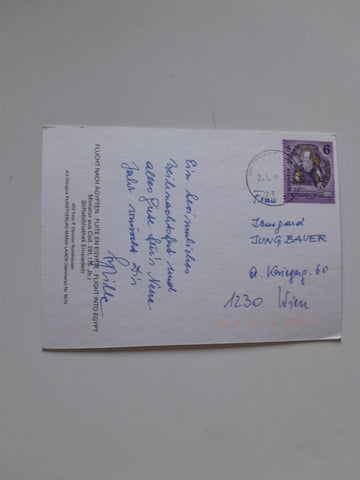 FLUCHT NACH ÄGYPTEN · FUITE EN EGYPTE · FLIGHT INTO EGYPT
Miniatur aus Cod. 291 (11. Jh.)
Stiftsbibliothek Einsiedeln
ars liturgica KUNSTVERLAG MARIA LAACH (Germany) Nr. 5575
Ein besinnliches
Weihnachtsfest und
alles Gute für's Neue
Jahr wünscht Dir
S 6
Frau
Irmgard
JUNG BAUER
60
1230 Wien